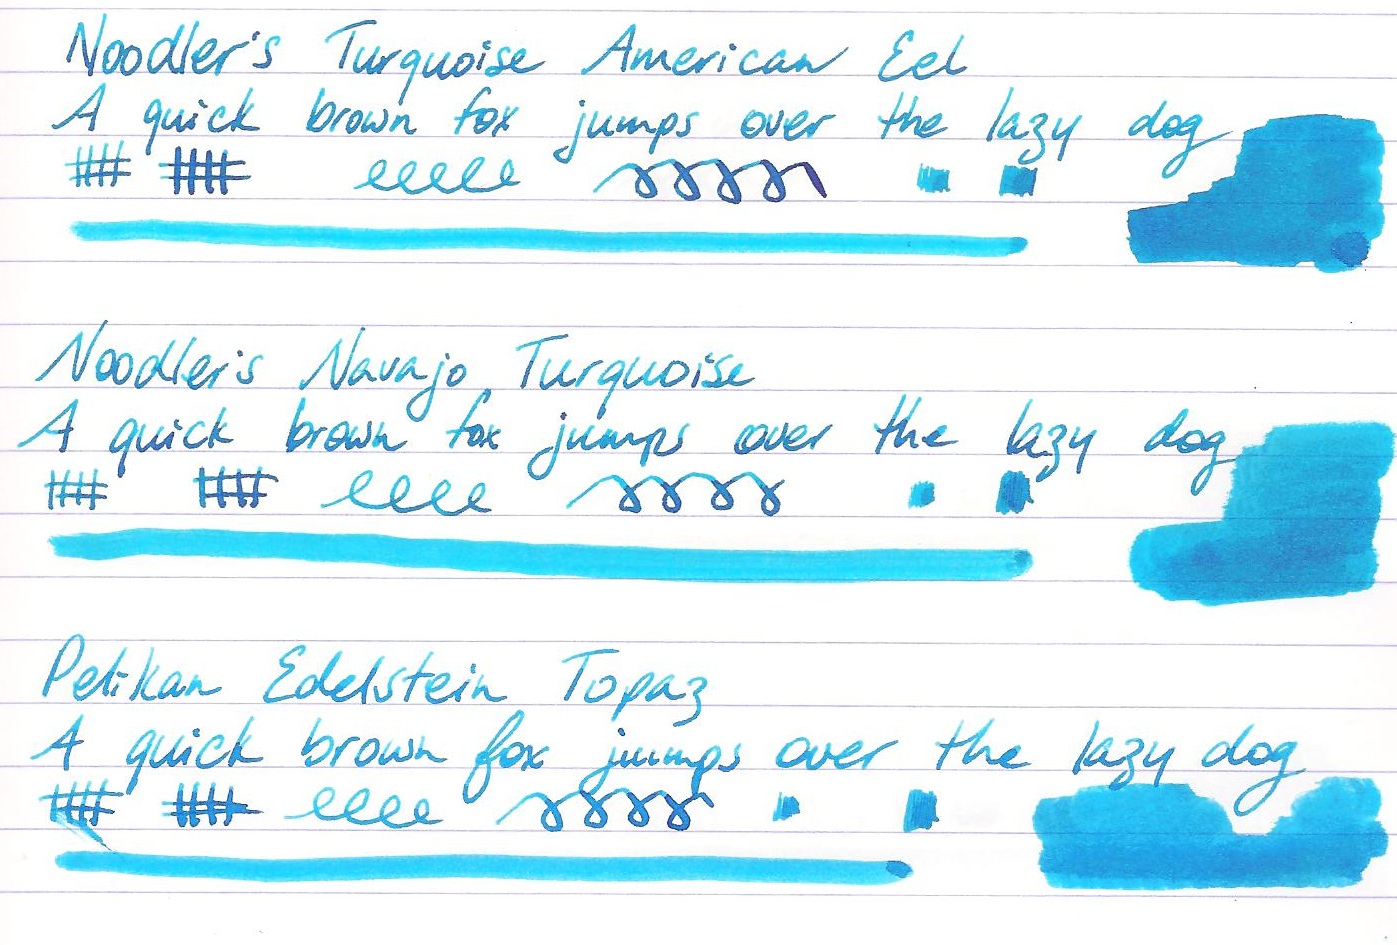 Noodler's Turquoise American Eel
A quick brown fox jumps over the lazy dog
Noodler's Navajo Turquoise
A quick brown fox jumps over the lazy dog
Pelikan Edelstein Topaz
A quick brown fox jumps over the lazy dog